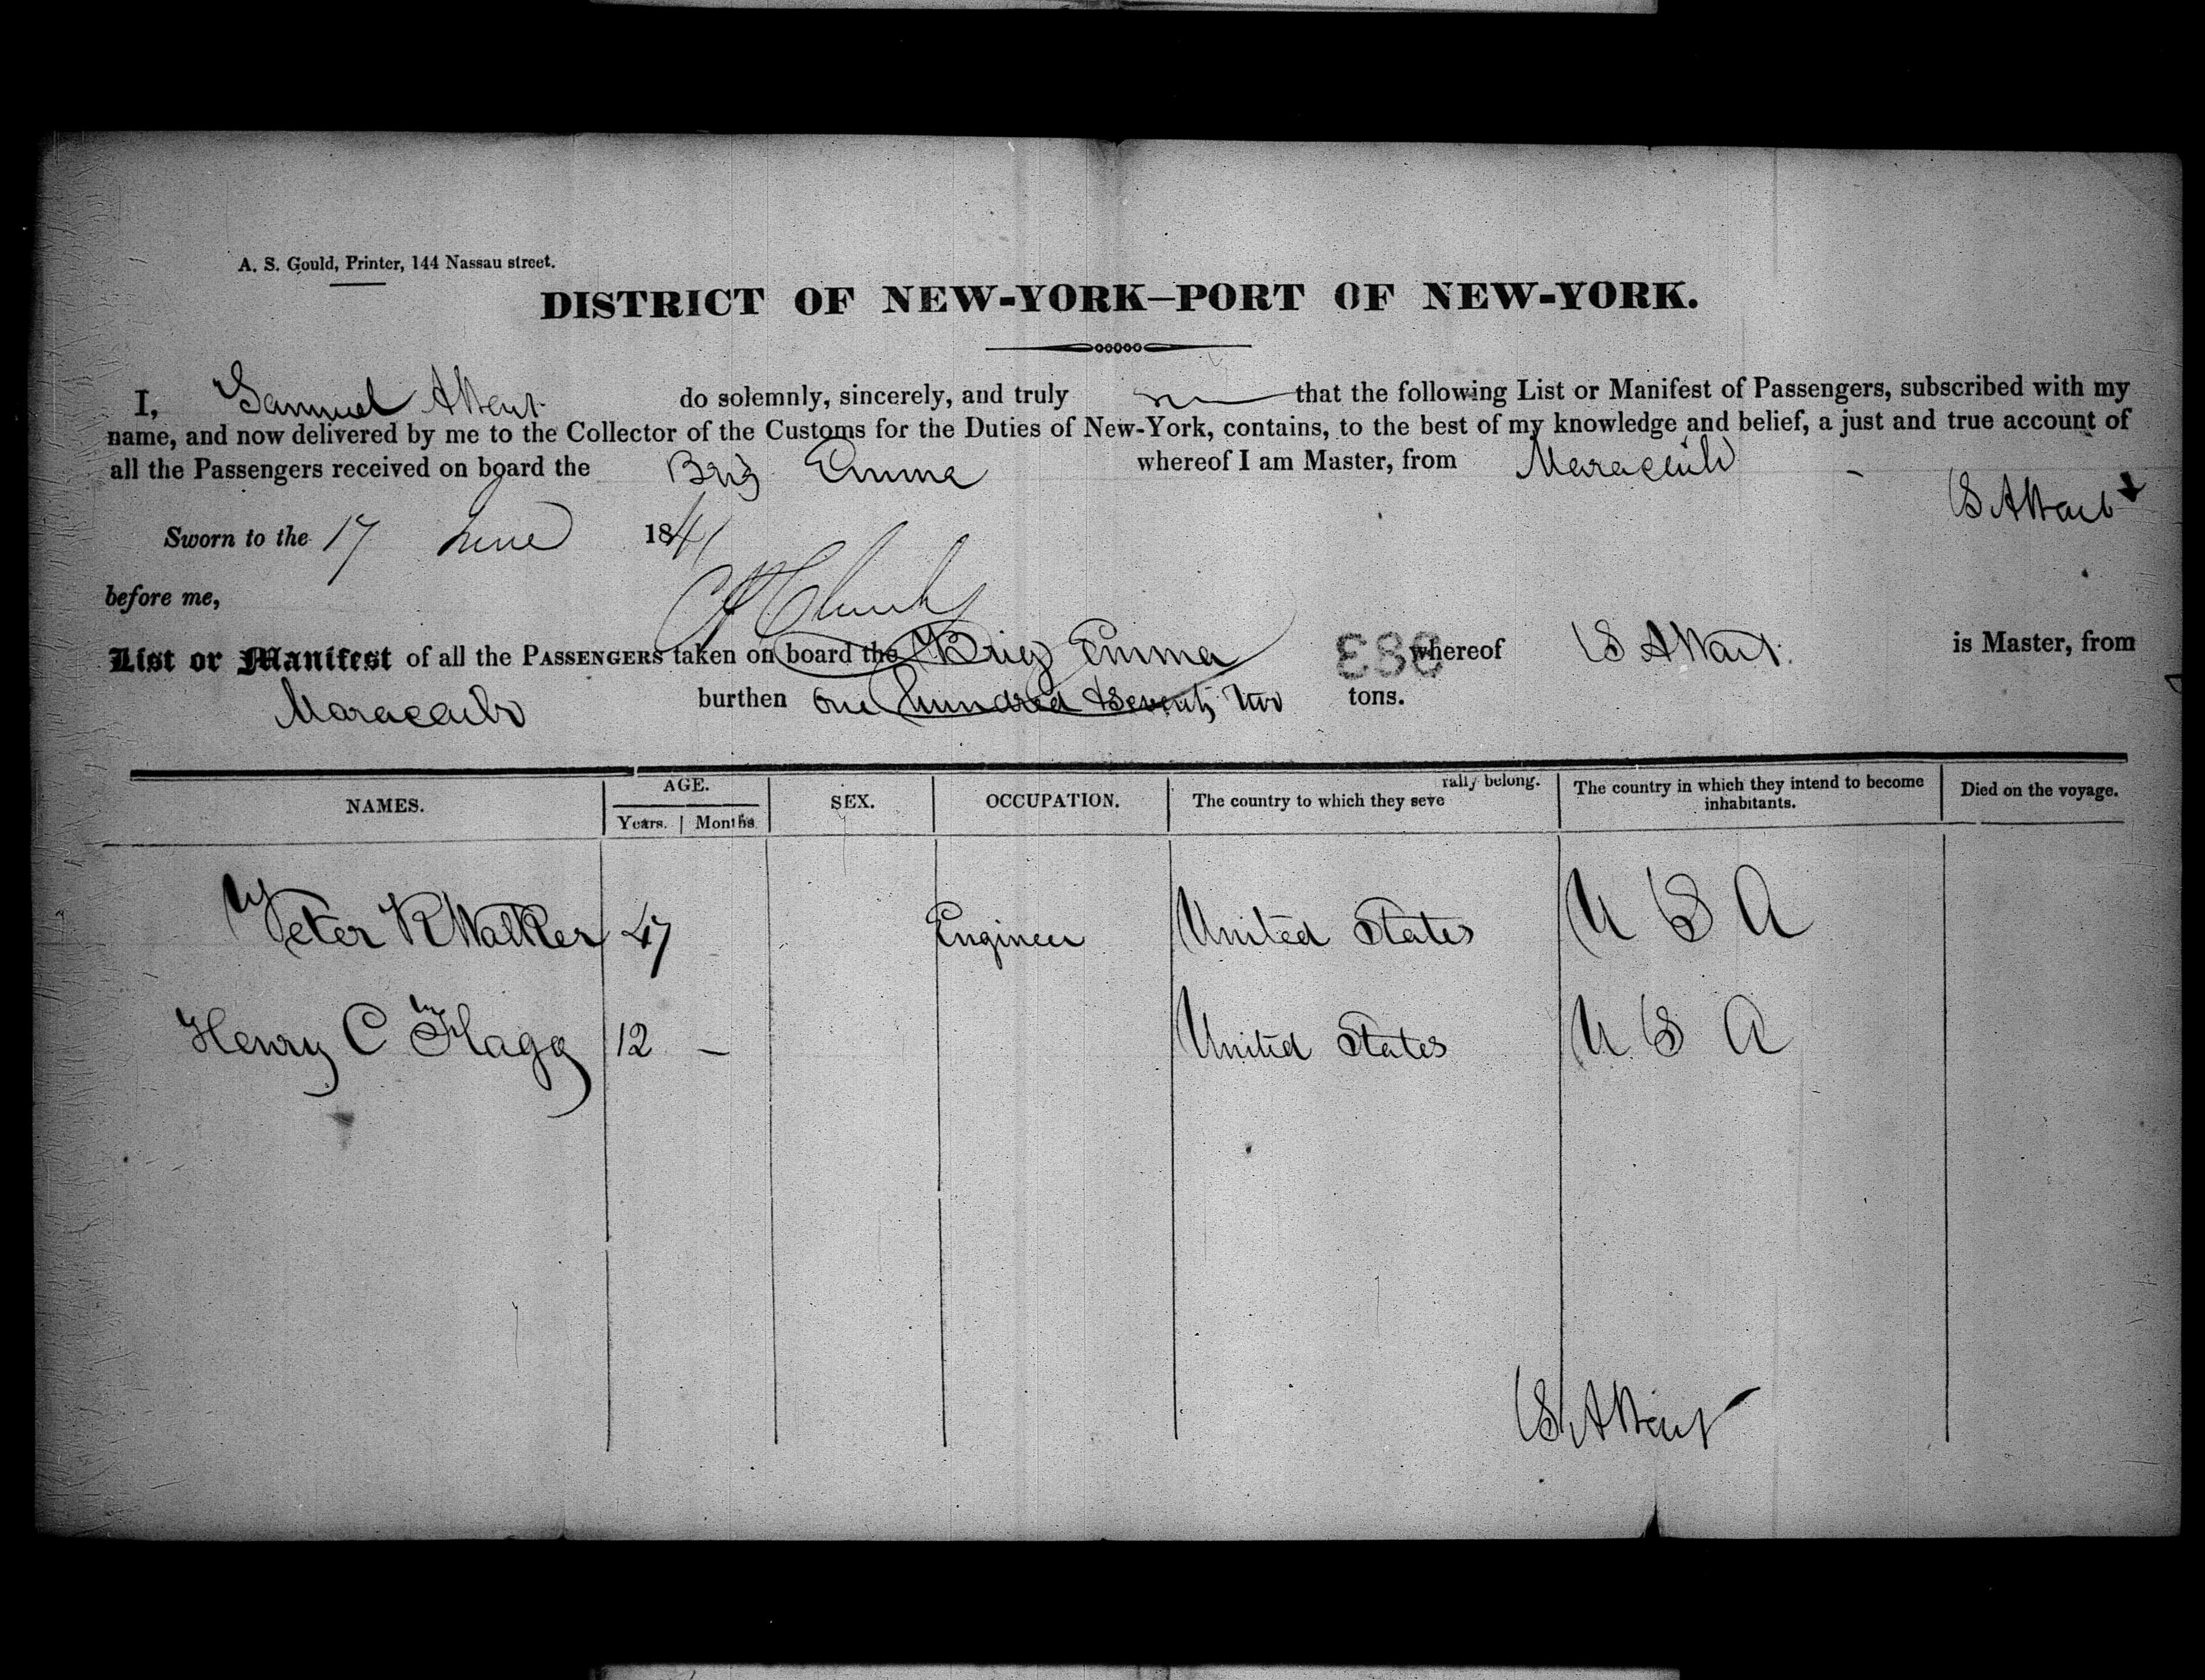 A. S. Gould, Printer, 144 Nassau street.
DISTRICT OF NEW-YORK—PORT OF NEW-YORK.
I, Samuel do solemnly, sincerely, and truly that the following List or Manifest of Passengers, subscribed with my
name, and now delivered by me to the Collector of the Customs for the Duties of New-York, contains, to the best of my knowledge and belief, a just and true account of
all the Passengers received on board the Brig Emma whereof I am Master, from Maracaibo
S A
Sworn to the 17 June 1841
before me,
List or Manifest of all the PASSENGERS taken on board the Brig Emma whereof S A is Master, from
Maracaibo burthen one hundred & seventy two tons.
NAMES. AGE. Years. Months SEX. OCCUPATION. The country to which they severally belong. The country in which they intend to become inhabitants. Died on the voyage.
Peter R Walker 47 Engineer United States U S A
Henry C Flagg 12 — United States U S A
S A